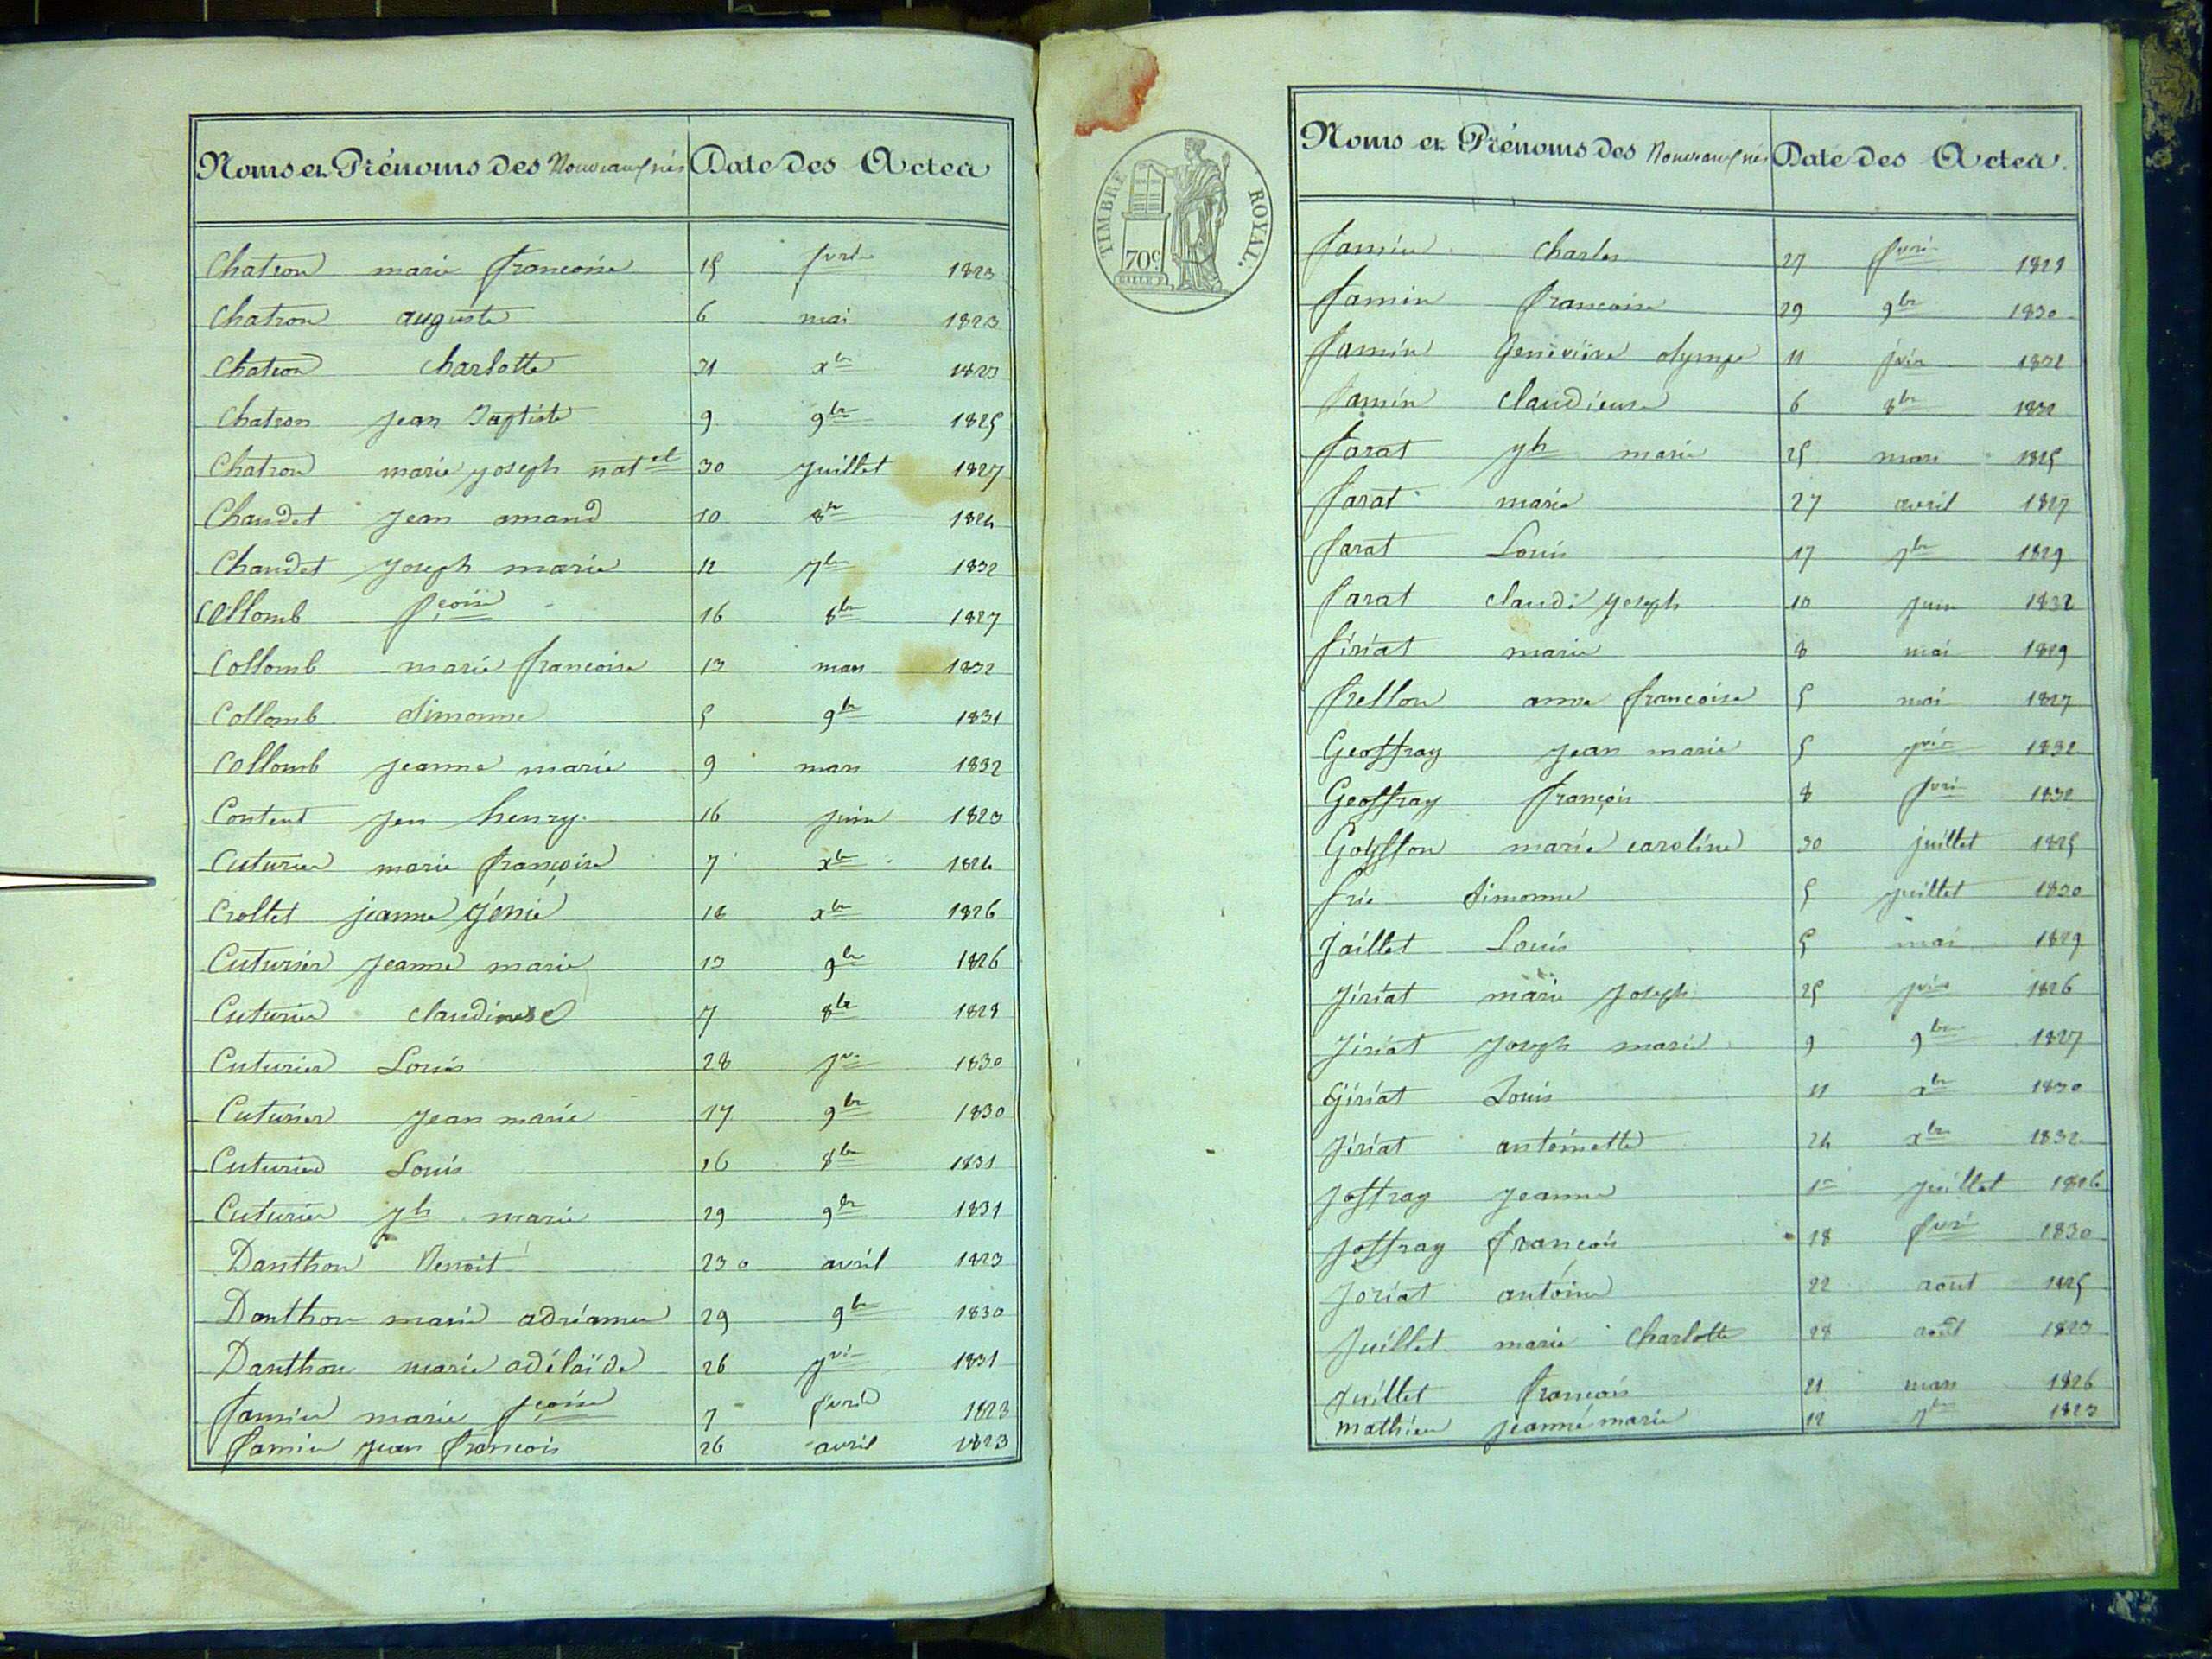 Noms et Prénoms des Nouveaux nés Date des Actes
Chatron marie françoise 15 fvri 1823
Chatron auguste 6 mai 1823
Chatron Charlotte 31 xbre 1823
Chatron jean Baptiste 9 9bre 1825
Chatron marie joseph nat el 30 juillet 1827
Chaudet jean amand 10 8bre 1824
Chaudet joseph marie 12 7bre 1832
Collomb fçoise 16 8bre 1827
Collomb marie françoise 13 mars 1832
Collomb Simonne 5 9bre 1831
Collomb jeanne marie 9 mars 1832
Content jen henry 16 juin 1823
Cuturier marie françoise 7 xbre 1824
Crollet jeanne génie 18 xbre 1826
Cuturier jeanne marie 13 9bre 1826
Cuturier claudinese 7 8bre 1828
Cuturier Louis 28 jvr 1830
Cuturier jean marie 17 9bre 1830
Cuturier Louis 26 8bre 1831
Cuturier jh marie 29 9bre 1831
Danthon Benoit 23 avril 1823
Danthon marie adrianne 29 9bre 1830
Danthon marie adélaïde 26 jvi 1831
famin marie fçoise 7 fvri 1823
famin jean françois 26 avril 1823
TIMBRE ROYAL.
70c
Noms et Prénoms des Nouveaux nés Date des Actes.
famin Charles 27 fvri 1828
famin françoise 29 9bre 1830
famin Geneviève olympe 11 jvir 1832
famin claudiense 6 8bre 1832
farat jh marie 25 mars 1825
farat marie 27 avril 1827
farat Louis 17 7bre 1829
farat claude joseph 10 juin 1832
firiat marie 8 mai 1829
frellon anne françoise 5 mai 1827
Geoffray jean marie 5 jvir 1832
Geoffray françois 8 fvri 1832
marie caroline 30 juillet 1825
frie Simonne 5 juillet 1830
jaillet Louis 5 mai 1829
jiriat marie joseph 25 jvir 1826
jiriat joseph marie 9 9bre 1827
Giriat Louis 11 xbre 1830
jiriat antoinette 24 xbre 1832
joffray jeanne 1er juillet 1826
joffray françois 18 fvri 1830
joriat antoine 22 aout 1825
juillet marie Charlotte 28 août 1823
juillet françois 21 mars 1826
mathieu jeanne marie 12 7bre 1823